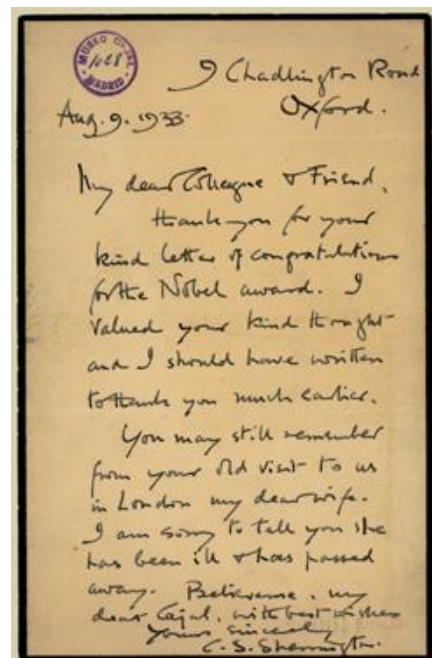 MUSEO CAJAL
1028
MADRID
9 Chadlington Road
Oxford.
Aug. 9. 1933.
My dear Colleague & Friend,
thank you for your
kind letter of congratulations
for the Nobel award. I
valued your kind thought
and I should have written
to thank you much earlier.
You may still remember
from your old visit to us
in London my dear wife.
I am sorry to tell you she
has been ill & has passed
away. Believe me, my
dear Cajal, with best wishes
Yours sincerely
C. S. Sherrington.